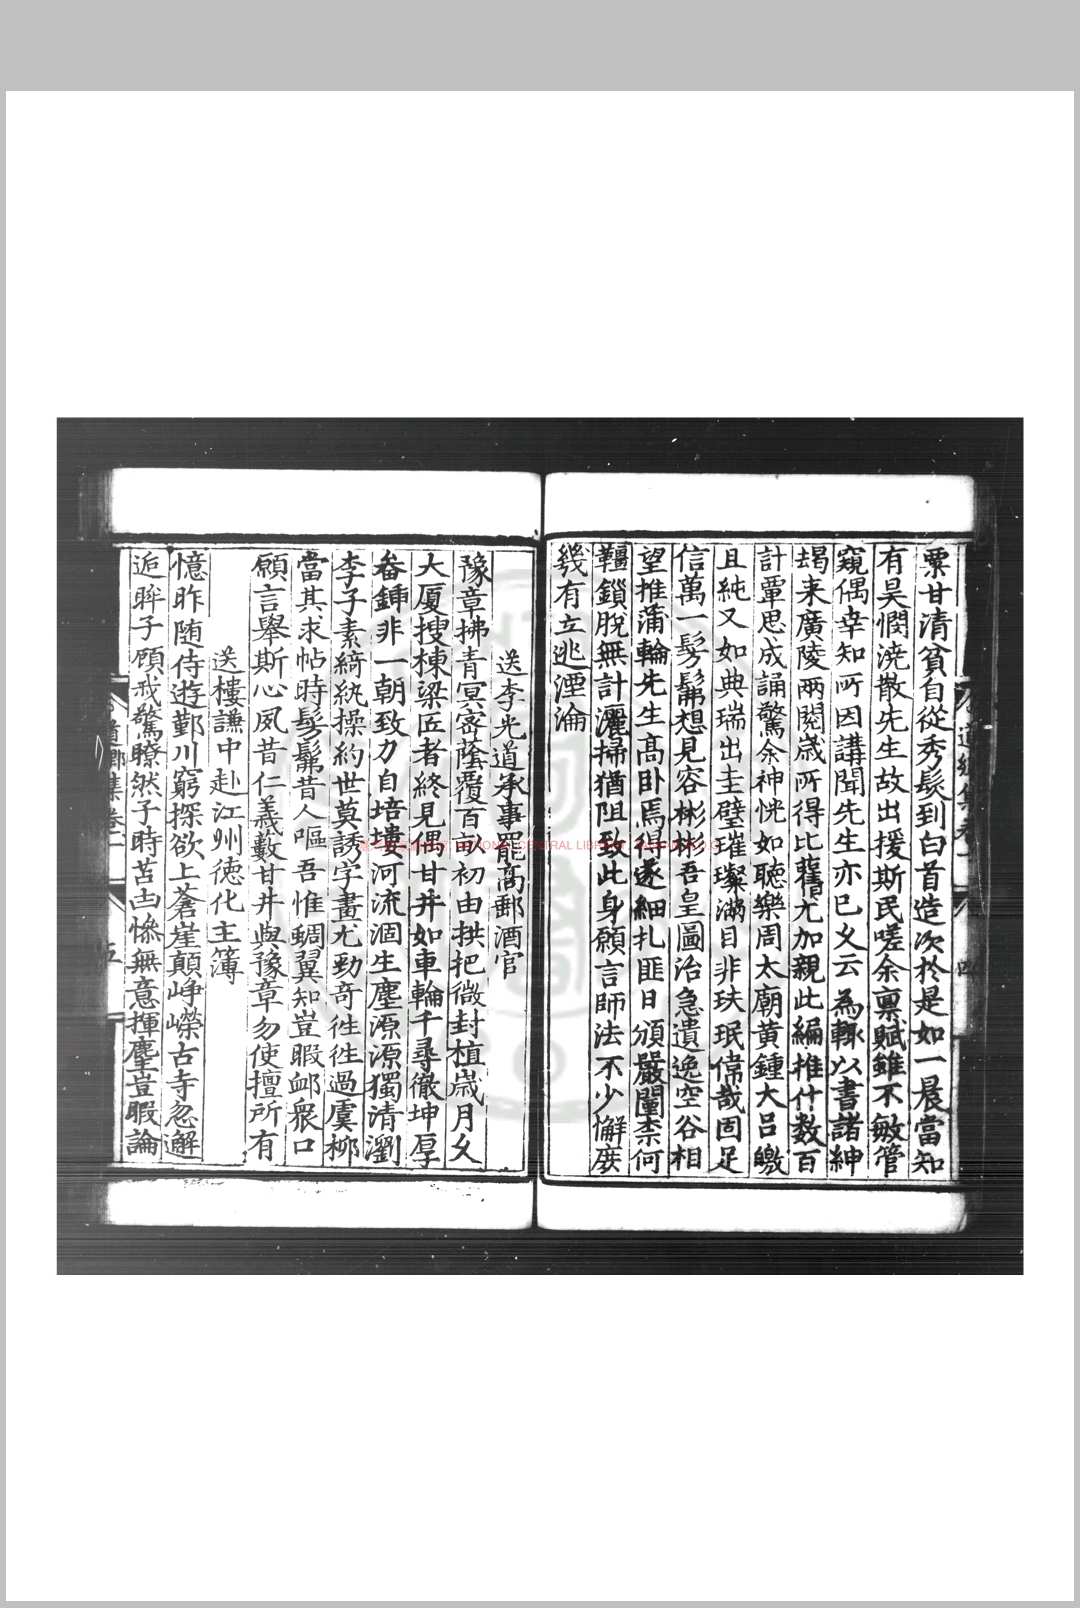 粟甘清貧自從秀髮到白首造次於是如一晨當知
有昊憫澆散先生故出援斯民嗟余稟賦雖不敏管
窺偶幸知所因講聞先生亦已乆云為輙以書諸紳
朅来廣陵兩閱歳所得比舊尤加親此編推什数百
計覃思成誦驚余神恍如聽樂周太廟黄鍾大吕皦
且純又如典瑞出圭璧璀璨滿目非玞珉偉㢤固足
信萬一髣髴想見容彬彬吾皇圖治急遺逸空谷相
望推蒲輪先生髙卧焉得遂細扎匪日頒嚴闉柰何
韁鎻脫無計灑掃猶阻致此身願言師法不少懈庻
幾有立逃湮淪
道鄉集卷二
四
送李光道承事罷髙郵酒官
豫章拂青冥密蔭覆百畝初由拱把微封植歳月乆
大厦搜棟梁匠者終見偶甘井如車輪千尋徹坤厚
畚鍤非一朝致力自培塿河流涸生塵源源獨清瀏
李子素綺紈操約世莫誘字畫尤勁竒徃徃過虞柳
當其求帖時髣髴昔人嘔吾惟蜩翼知豈暇䘏衆口
願言舉斯心夙昔仁義藪甘井與豫章勿使擅所有
送樓謙中赴江州徳化主簿
憶昨随侍遊鄞川窮探欲上蒼崖顛崢嶸古寺忽邂
逅眸子顧我驚瞭然子時苦凷慘無意揮麈豈暇論
道鄉集卷二
五
NATIONAL CENTRAL LIBRARY